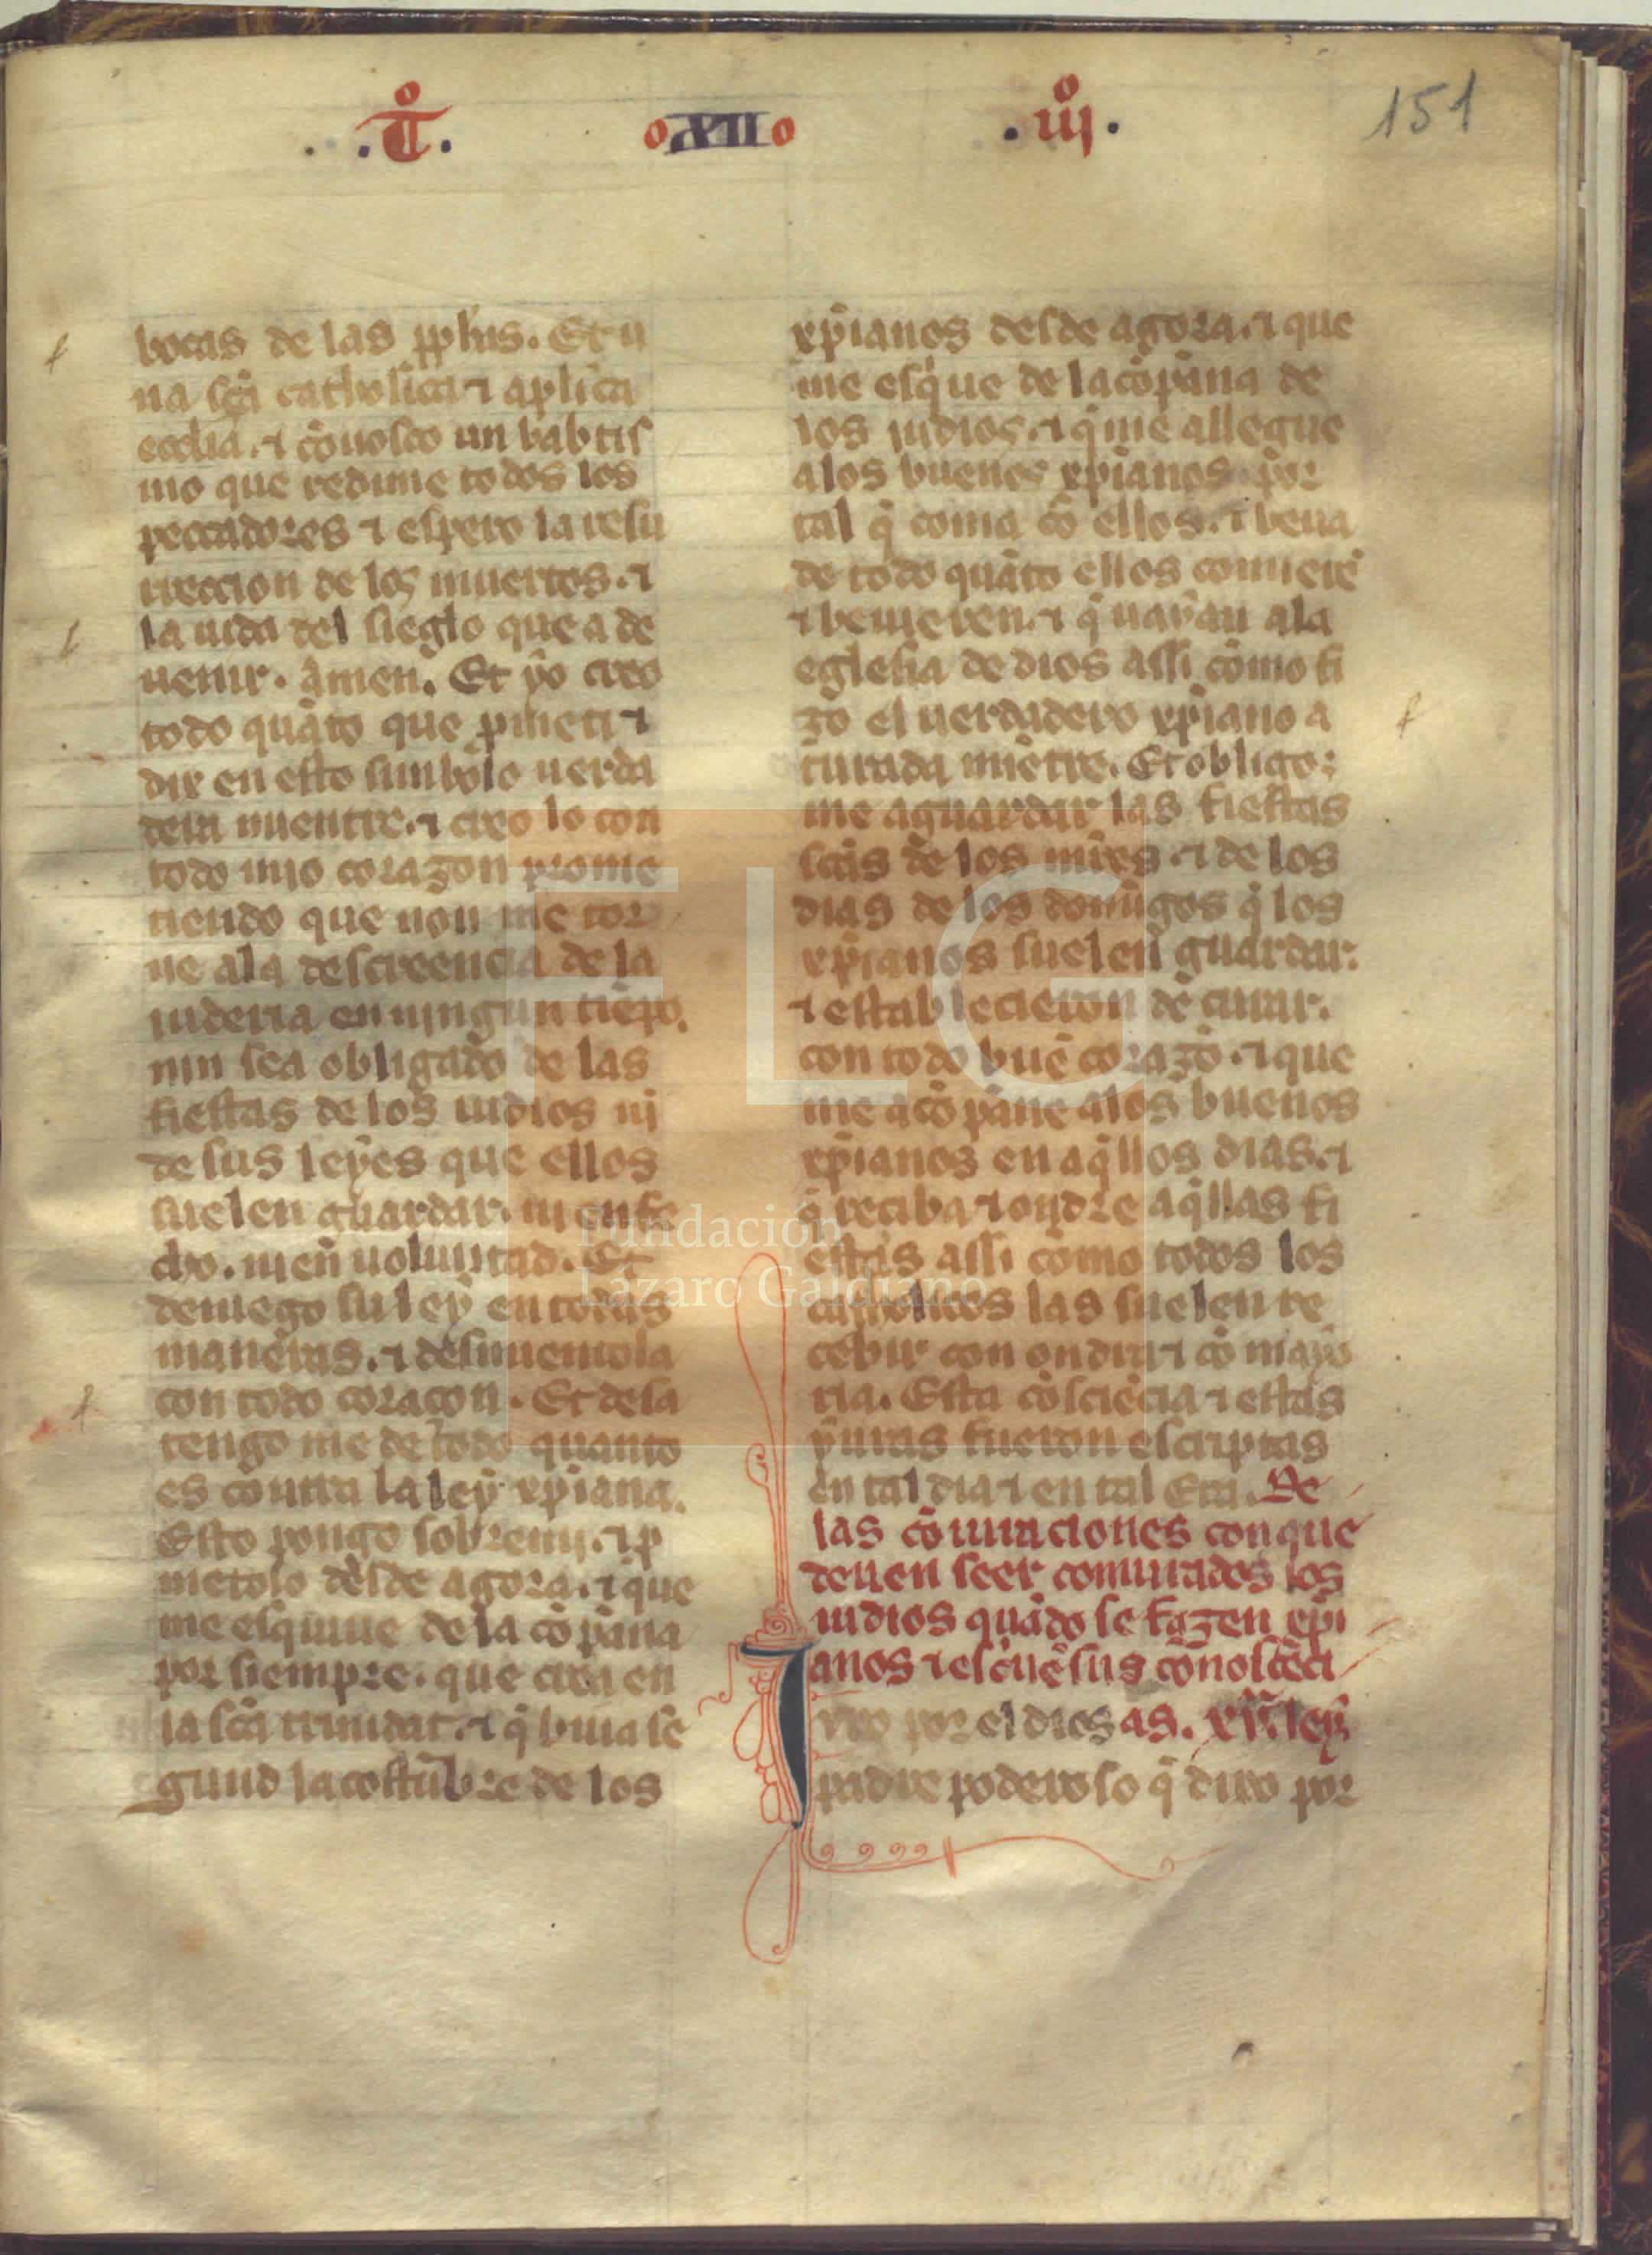 .T̊. XII .iij̊. 151
bocas de las pphas. Et u
na scã catholica ⁊ aplica
ecclia. ⁊ cõnosco un babtis
mo que redime todos los
peccadores ⁊ espero la resu
rreccion de los muertos. ⁊
la uida del sieglo que a de
uenir. amen. Et yo creo
todo quãto que
dix en esto simbolo uerda
dera mientre. ⁊ creo lo con
todo mio corazon prome
tiendo que non me tor
ne ala descreencia de la
iuderia en ningun tiẽpo.
nin sea obligado de las
fiestas de los iudios nj
de sus leyes que ellos
suelen guardar. ni en fe
cho. ni en uoluntad. Et
deniego su ley en todas
maneras. ⁊ desmientola
con todo coraçon. Et desa
tengo me de todo quanto
es contra la ley xpiana.
Esto pongo sobre mj. ⁊ p
metolo desde agora. ⁊ que
me esquiue de la cõpãna
por siempre. que crea en
la scã trinidat. ⁊ q̃ biua se
gund la costũbre de los
xpianos desde agora. ⁊ que
me esq̃ue de la cõpãna de
los iudios. ⁊ q̃ me allegue
a los buenos xpianos. por
tal q̃ coma cõ ellos. ⁊ beua
de todo quãto ellos comierẽ
⁊ beuieren. ⁊ q̃ uayau ala
eglesia de dios assi como fi
zo el uerdadero xpiano a
turada miẽtre. Et obligo
me aguardar las fiestas
scãs de los mr̃es. ⁊ de los
dias de los domĩgos q̃ los
xpianos suelen guardar.
⁊ establecieron de
con todo buẽ corazõ. ⁊ que
me acõpãne alos buenos
xpianos en aq̃llos dias. ⁊
q̃ reciba ⁊ ondre aq̃llas fi
estas assi como todos los
catholicos las suelen re
cebir con ondra ⁊ cõ mayo
ria. Esta cõsciẽcia ⁊ estas
yuras fueron escriptas
en tal dia ⁊ en tal Era. De
las cõiuraciones con que
deuen seer coniurados los
iudios quãdo se fazen xpi
anos ⁊ escriuẽ sus conoscẽci
as. ley
Iuro por el dios
padre poderoso q̃ dixo por
FLG
Fundación
Lázaro Galdiano